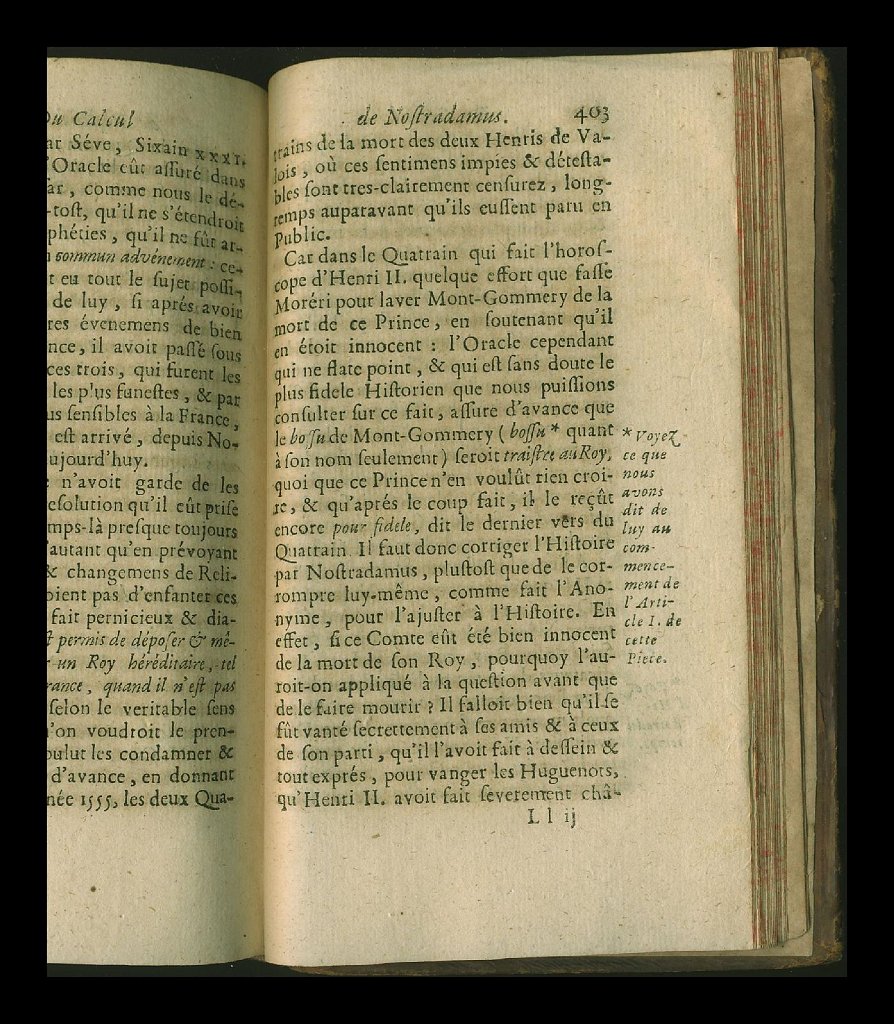 Du Calcul
ar Séve, Sixain XXXI.
Oracle eût aſſuré dans
ar, comme nous le dé-
-toſt, qu'il ne s'étendroit
phéties, qu'il ne fût ar-
commun advénement: ce-
t eu tout le ſujet poſſi-
de luy, ſi aprés avoir
res évenemens de bien
nce, il avoit paſſé ſous
ces trois, qui furent les
les plus funeſtes, & par
us ſenſibles à la France,
eſt arrivé, depuis No-
ujourd'huy.
n'avoit garde de les
eſolution qu'il eût priſe
mps-là preſque toujours
autant qu'en prévoyant
& changemens de Reli-
oient pas d'enfanter ces
fait pernicieux & dia-
t permis de dépoſer & mê-
un Roy héréditaire, tel
rance, quand il n'eſt pas
ſelon le veritable ſens
'on voudroit le pren-
oulut les condamner &
d'avance, en donnant
née 1555, les deux Qua-
de Noſtradamus. 403
trains de la mort des deux Henris de Va-
lois, où ces ſentimens impies & déteſta-
bles ſont tres-clairement cenſurez, long-
temps auparavant qu'ils euſſent paru en
Public.
Car dans le Quatrain qui fait l'horoſ-
cope d'Henri II. quelque effort que faſſe
Moréri pour laver Mont-Gommery de la
mort de ce Prince, en ſoutenant qu'il
en étoit innocent : l'Oracle cependant
qui ne flate point, & qui eſt ſans doute le
plus fidele Hiſtorien que nous puiſſions
conſulter ſur ce fait, aſſure d'avance que
le boſſu de Mont-Gommery ( boſſu * quant
à ſon nom ſeulement ) ſeroit traiſtre au Roy,
quoi que ce Prince n'en voulût rien croi-
re, & qu'aprés le coup fait, il le reçût
encore pour fidele, dit le dernier vers du
Quatrain. Il faut donc corriger l'Hiſtoire
par Noſtradamus, pluſtoſt que de le cor-
rompre luy-même, comme fait l'Ano-
nyme, pour l'ajuſter à l'Hiſtoire. En
effet, ſi ce Comte eût été bien innocent
de la mort de ſon Roy, pourquoy l'au-
roit-on appliqué à la queſtion avant que
de le faire mourir ? Il falloit bien qu'il ſe
fût vanté ſecrettement à ſes amis & à ceux
de ſon parti, qu'il l'avoit fait à deſſein &
tout exprés, pour vanger les Huguenots,
qu'Henri II. avoit fait ſeverement châ-
L l ij
* Voyez
ce que
nous
avons
dit de
luy au
com-
mence-
ment de
l'Arti-
cle I. de
cette
Piece.